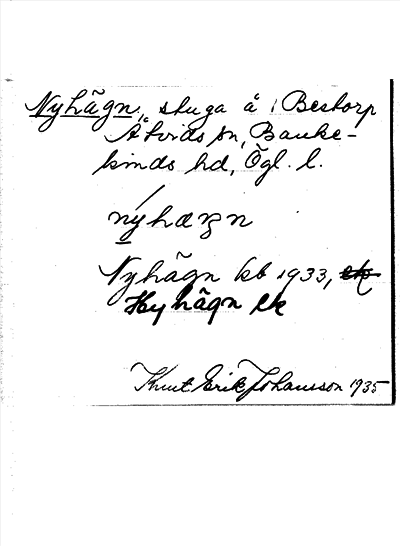 Nyhägn, stuga å Bestorp
Åtvids sn, Banke-
kinds hd, Ögl. l.
nýhæŋn
Nyhägn kb 1933, ek
Hyhägn ek
Knut Erik Johansson 1935